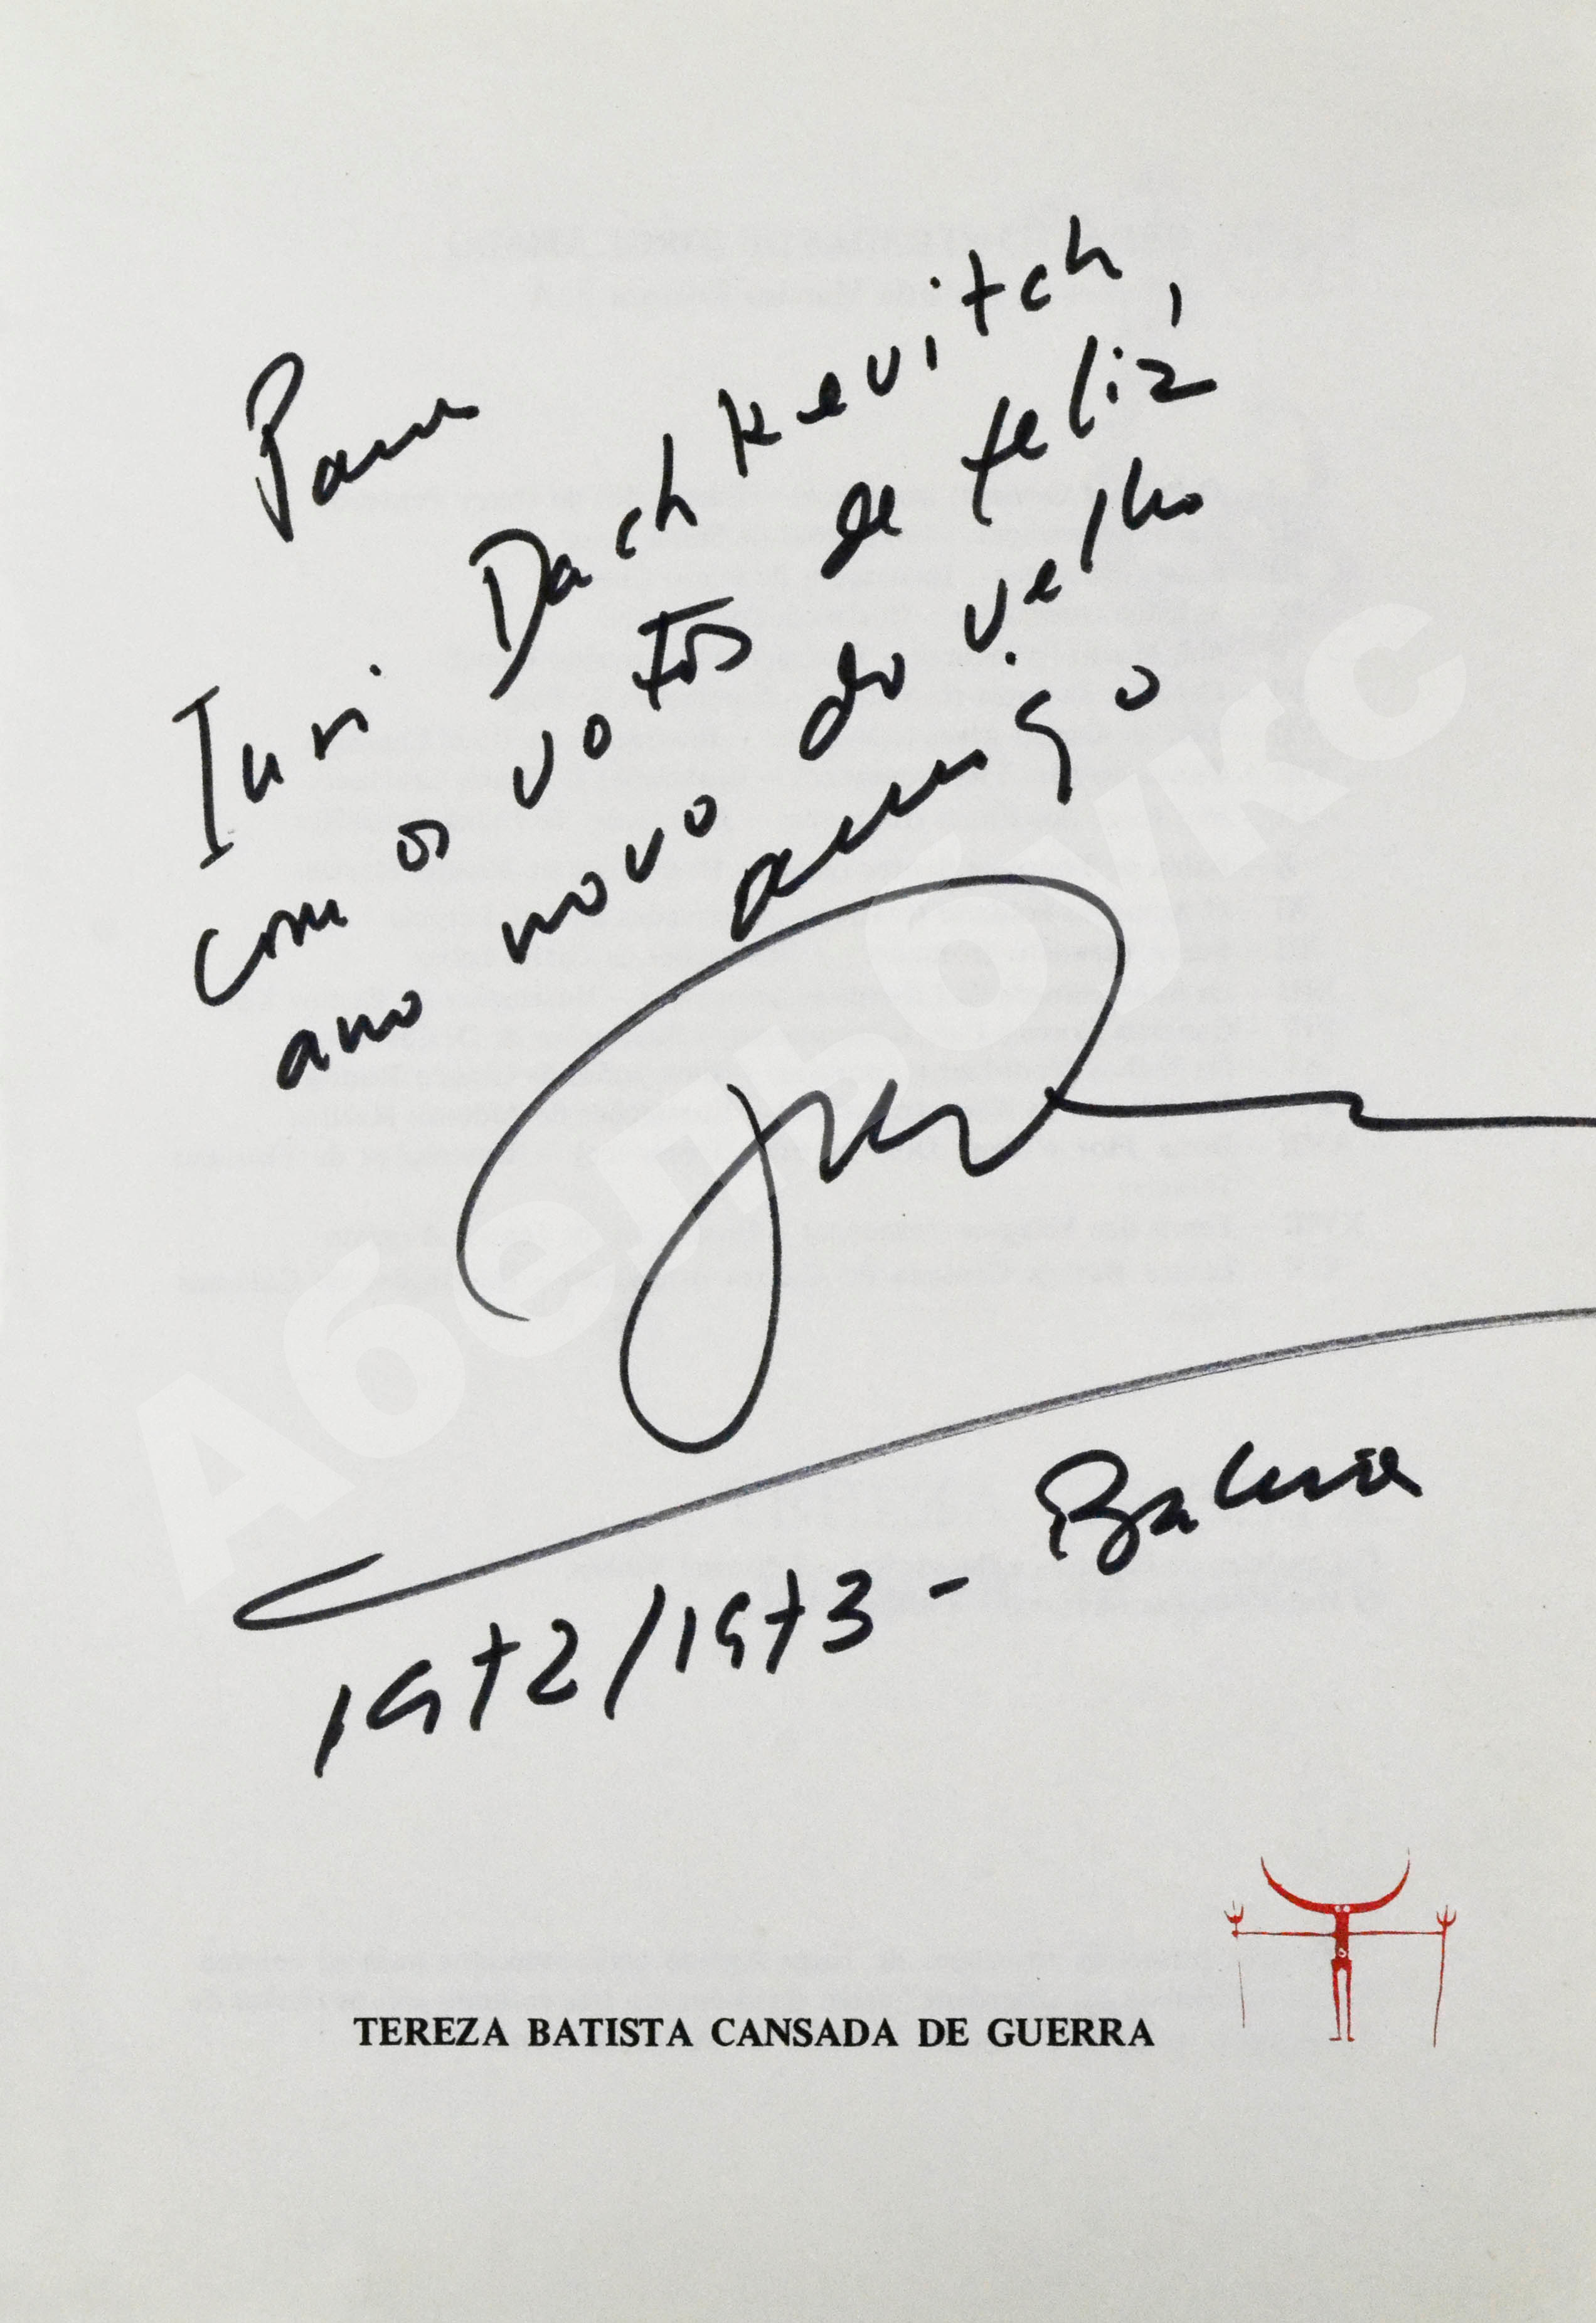 Para
Iuri Dachkevitch,
com os votos de feliz
ano novo do velho
amigo
1972/1973 - Bahia
TEREZA BATISTA CANSADA DE GUERRA
Абельбукс